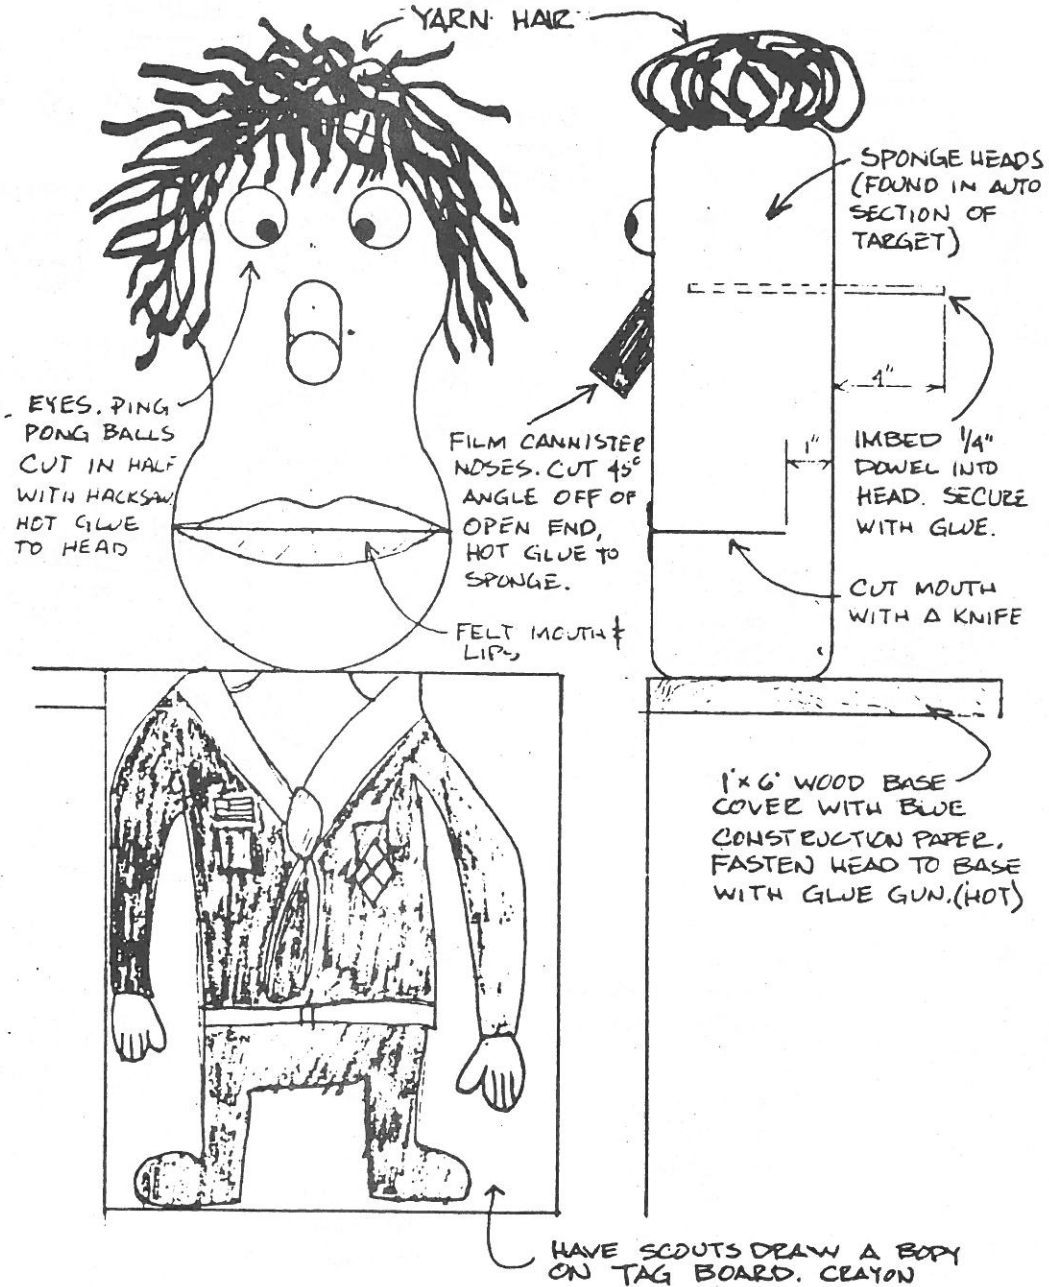 YARN HAIR
SPONGE HEADS
(FOUND IN AUTO
SECTION OF
TARGET)
4"
1"
EYES. PING
PONG BALLS
CUT IN HALF
WITH HACKSAW
HOT GLUE
TO HEAD
FILM CANNISTER
NOSES. CUT 45°
ANGLE OFF OF
OPEN END,
HOT GLUE TO
SPONGE.
IMBED 1/4"
DOWEL INTO
HEAD. SECURE
WITH GLUE.
CUT MOUTH
WITH A KNIFE
FELT MOUTH &
LIPS
1"x6" WOOD BASE
COVER WITH BLUE
CONSTRUCTION PAPER.
FASTEN HEAD TO BASE
WITH GLUE GUN.(HOT)
HAVE SCOUTS DRAW A BODY
ON TAG BOARD. CRAYON